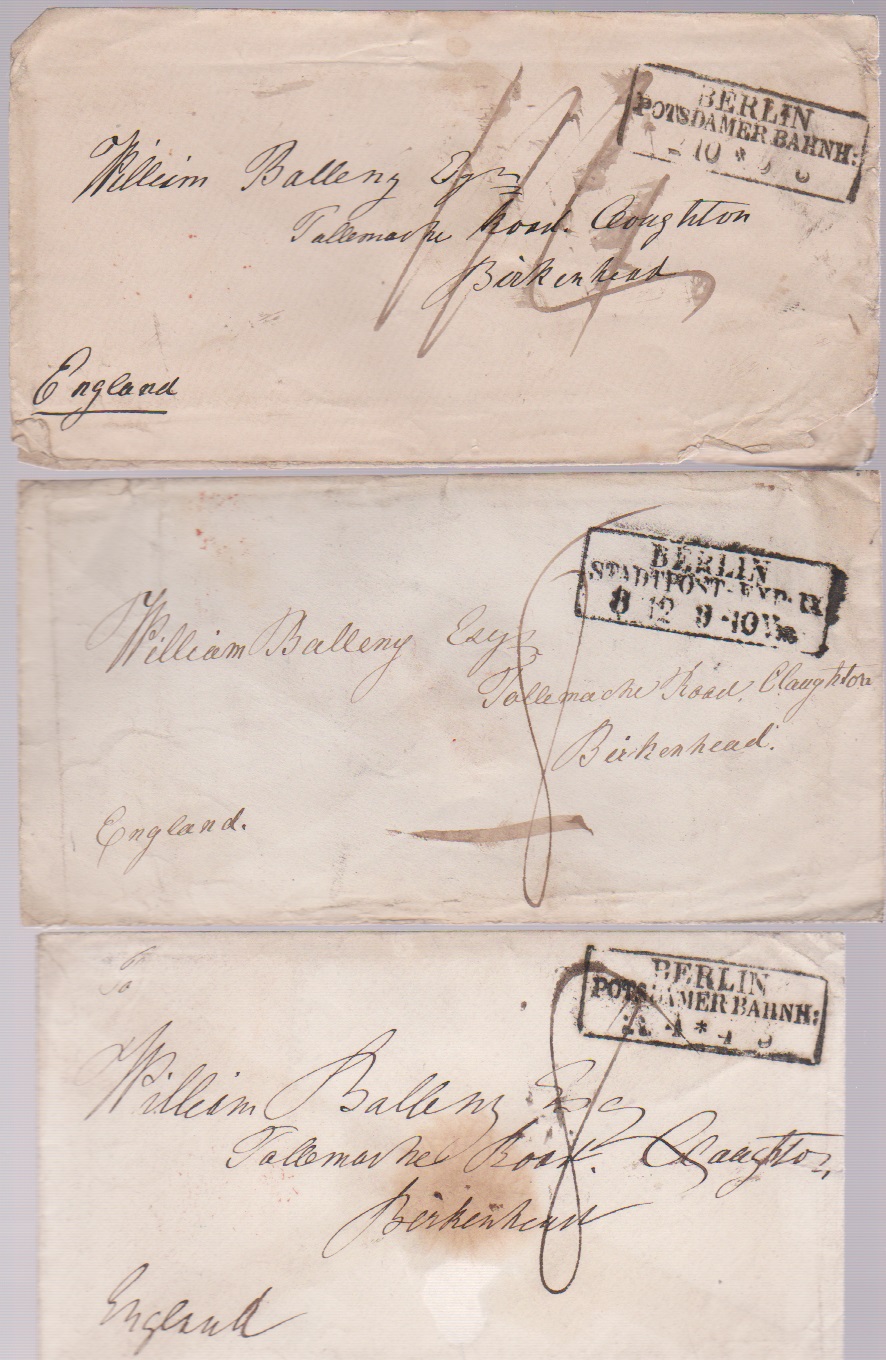 BERLIN
POTSDAMER BAHNH:
10 *
William Balleny Esqre
Tallemache Road. Cloughton
Birkenhead
England
BERLIN
STADTPOST-EXP. IX
8 12 9-10 Vm
William Balleny Esqr
Tallemache Road, Claughton
Birkenhead.
England.
8
BERLIN
POTSDAMER BAHNH:
4 * 4
To
William Balleny Esq
Tallemache Road. Claughton
Birkenhead
England
8